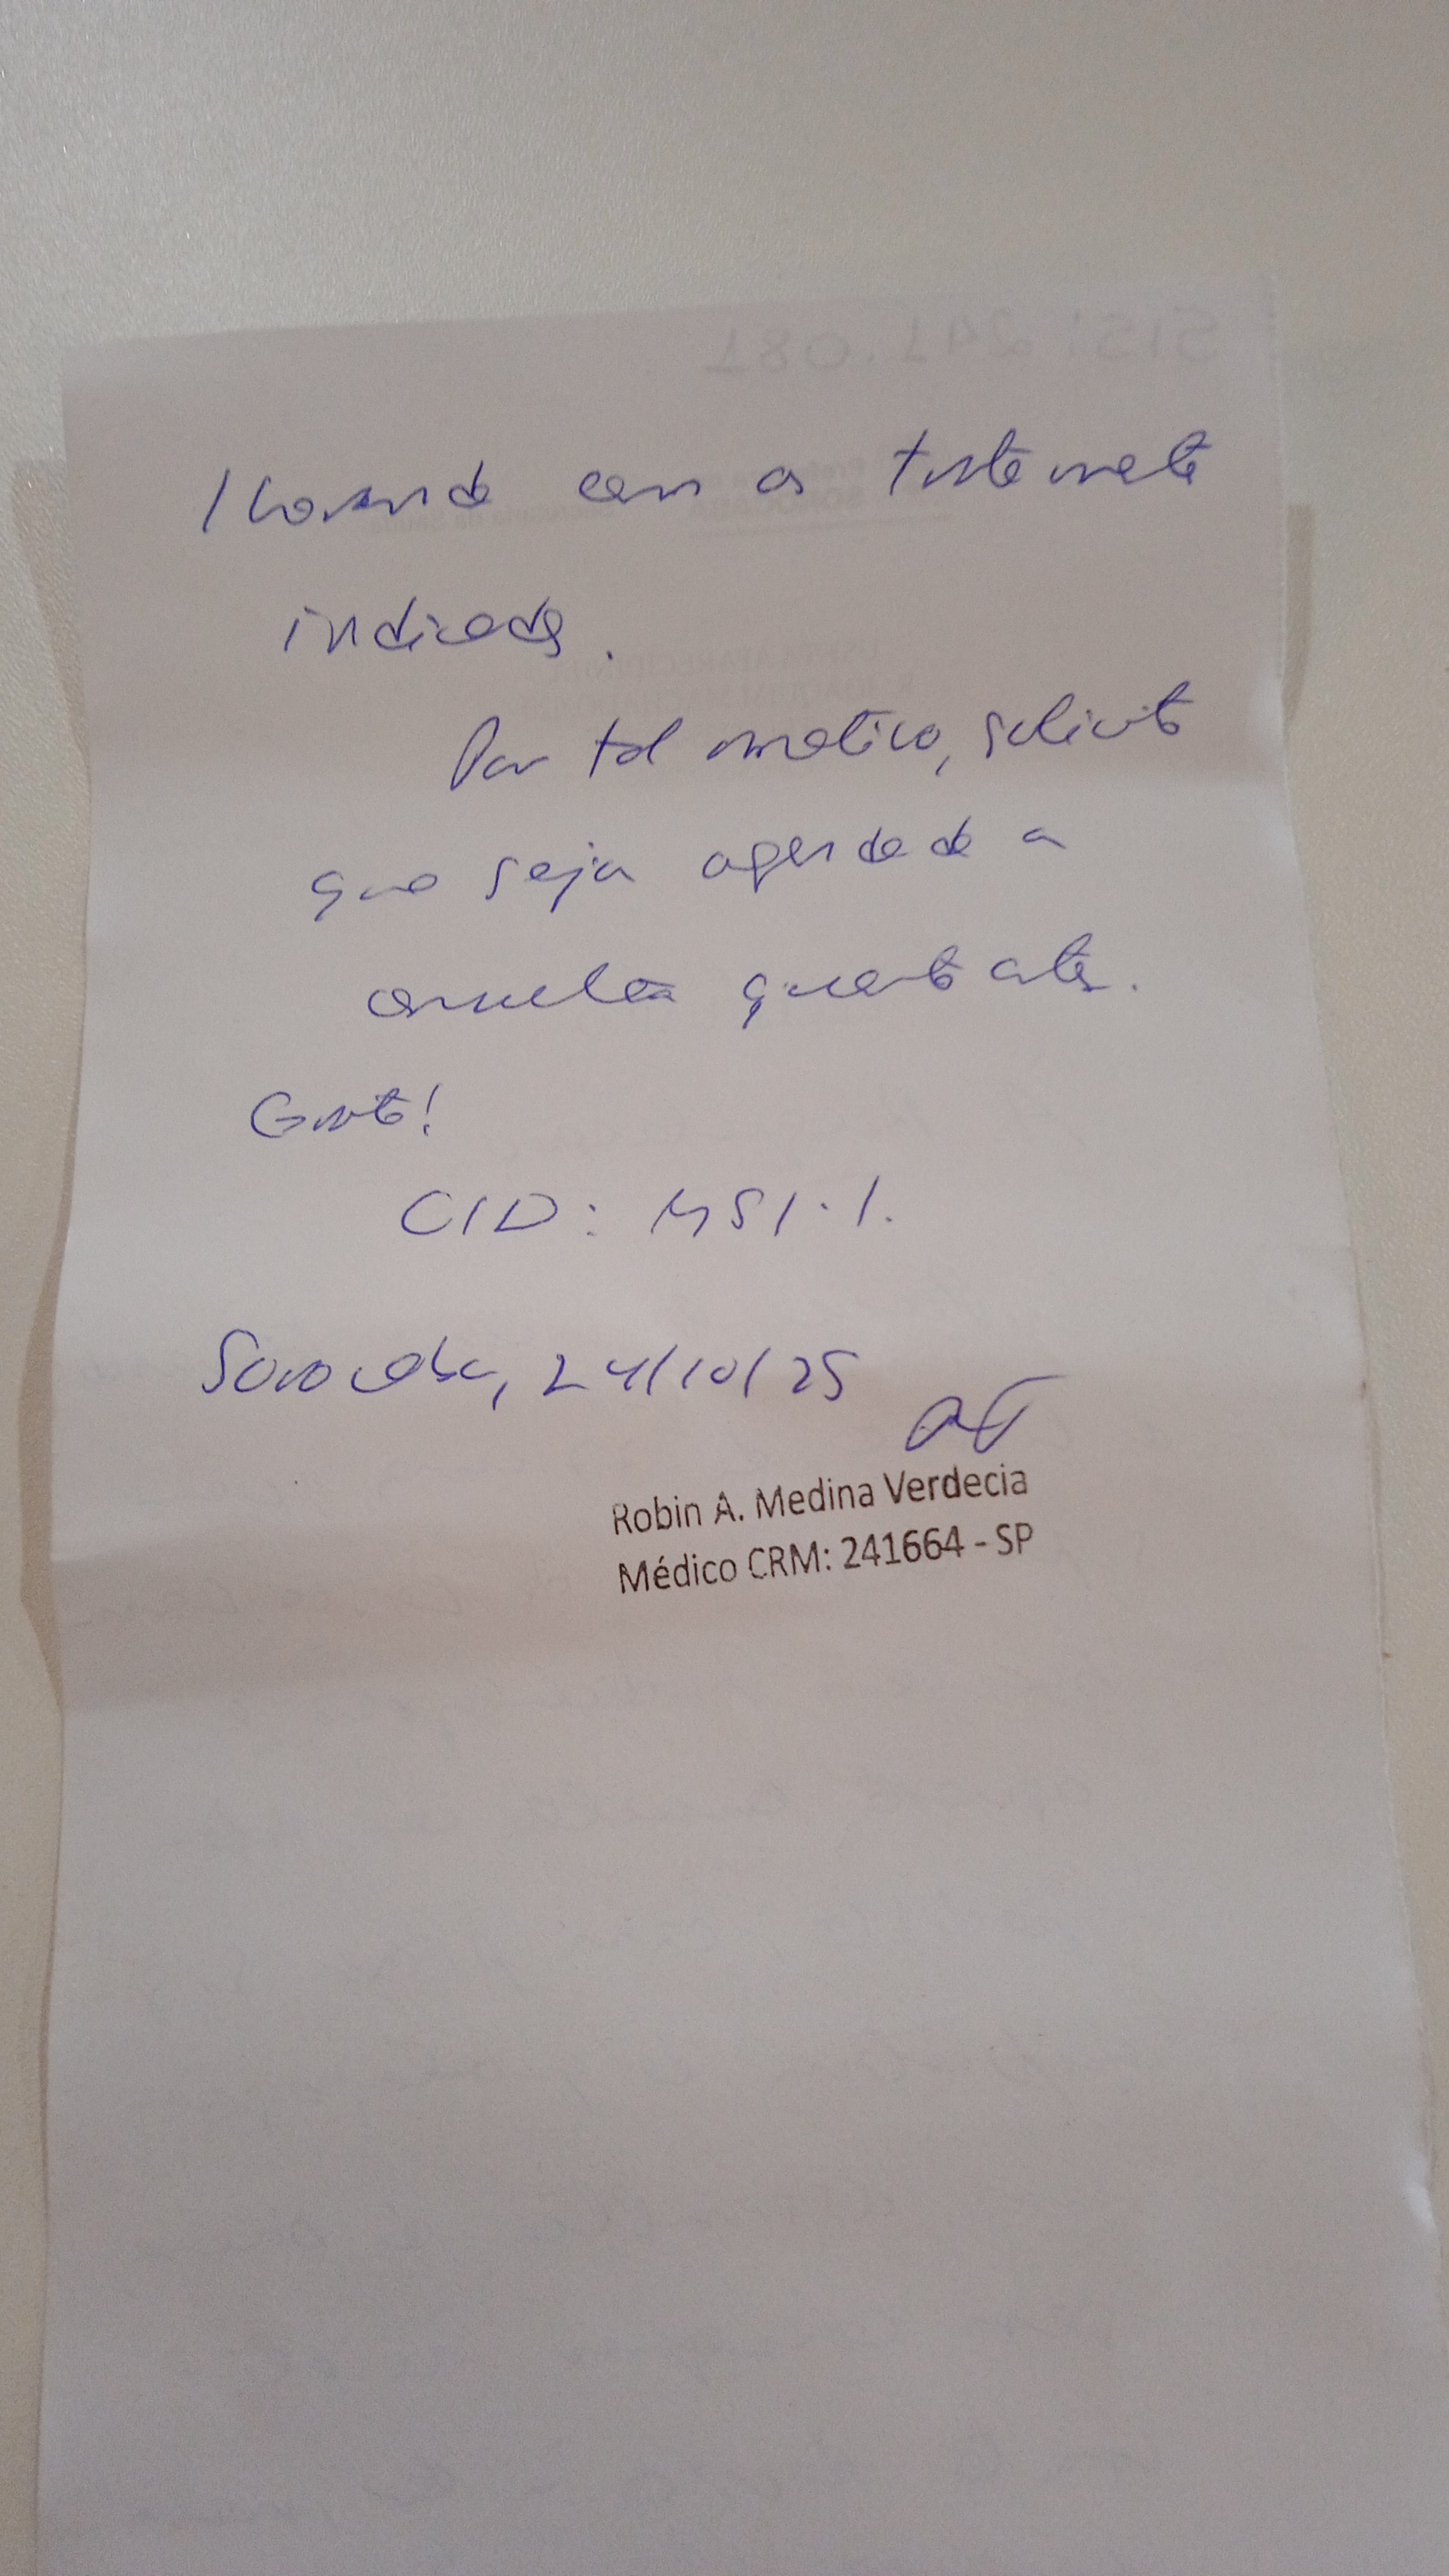 lhorando com os tratamento
indicados.
Por tal motivo, solicito
que seja agendada a
consulta quanto antes.
Grato!
CID: M51.1.
Sorocaba, 24/10/25
Robin A. Medina Verdecia
Médico CRM: 241664 - SP